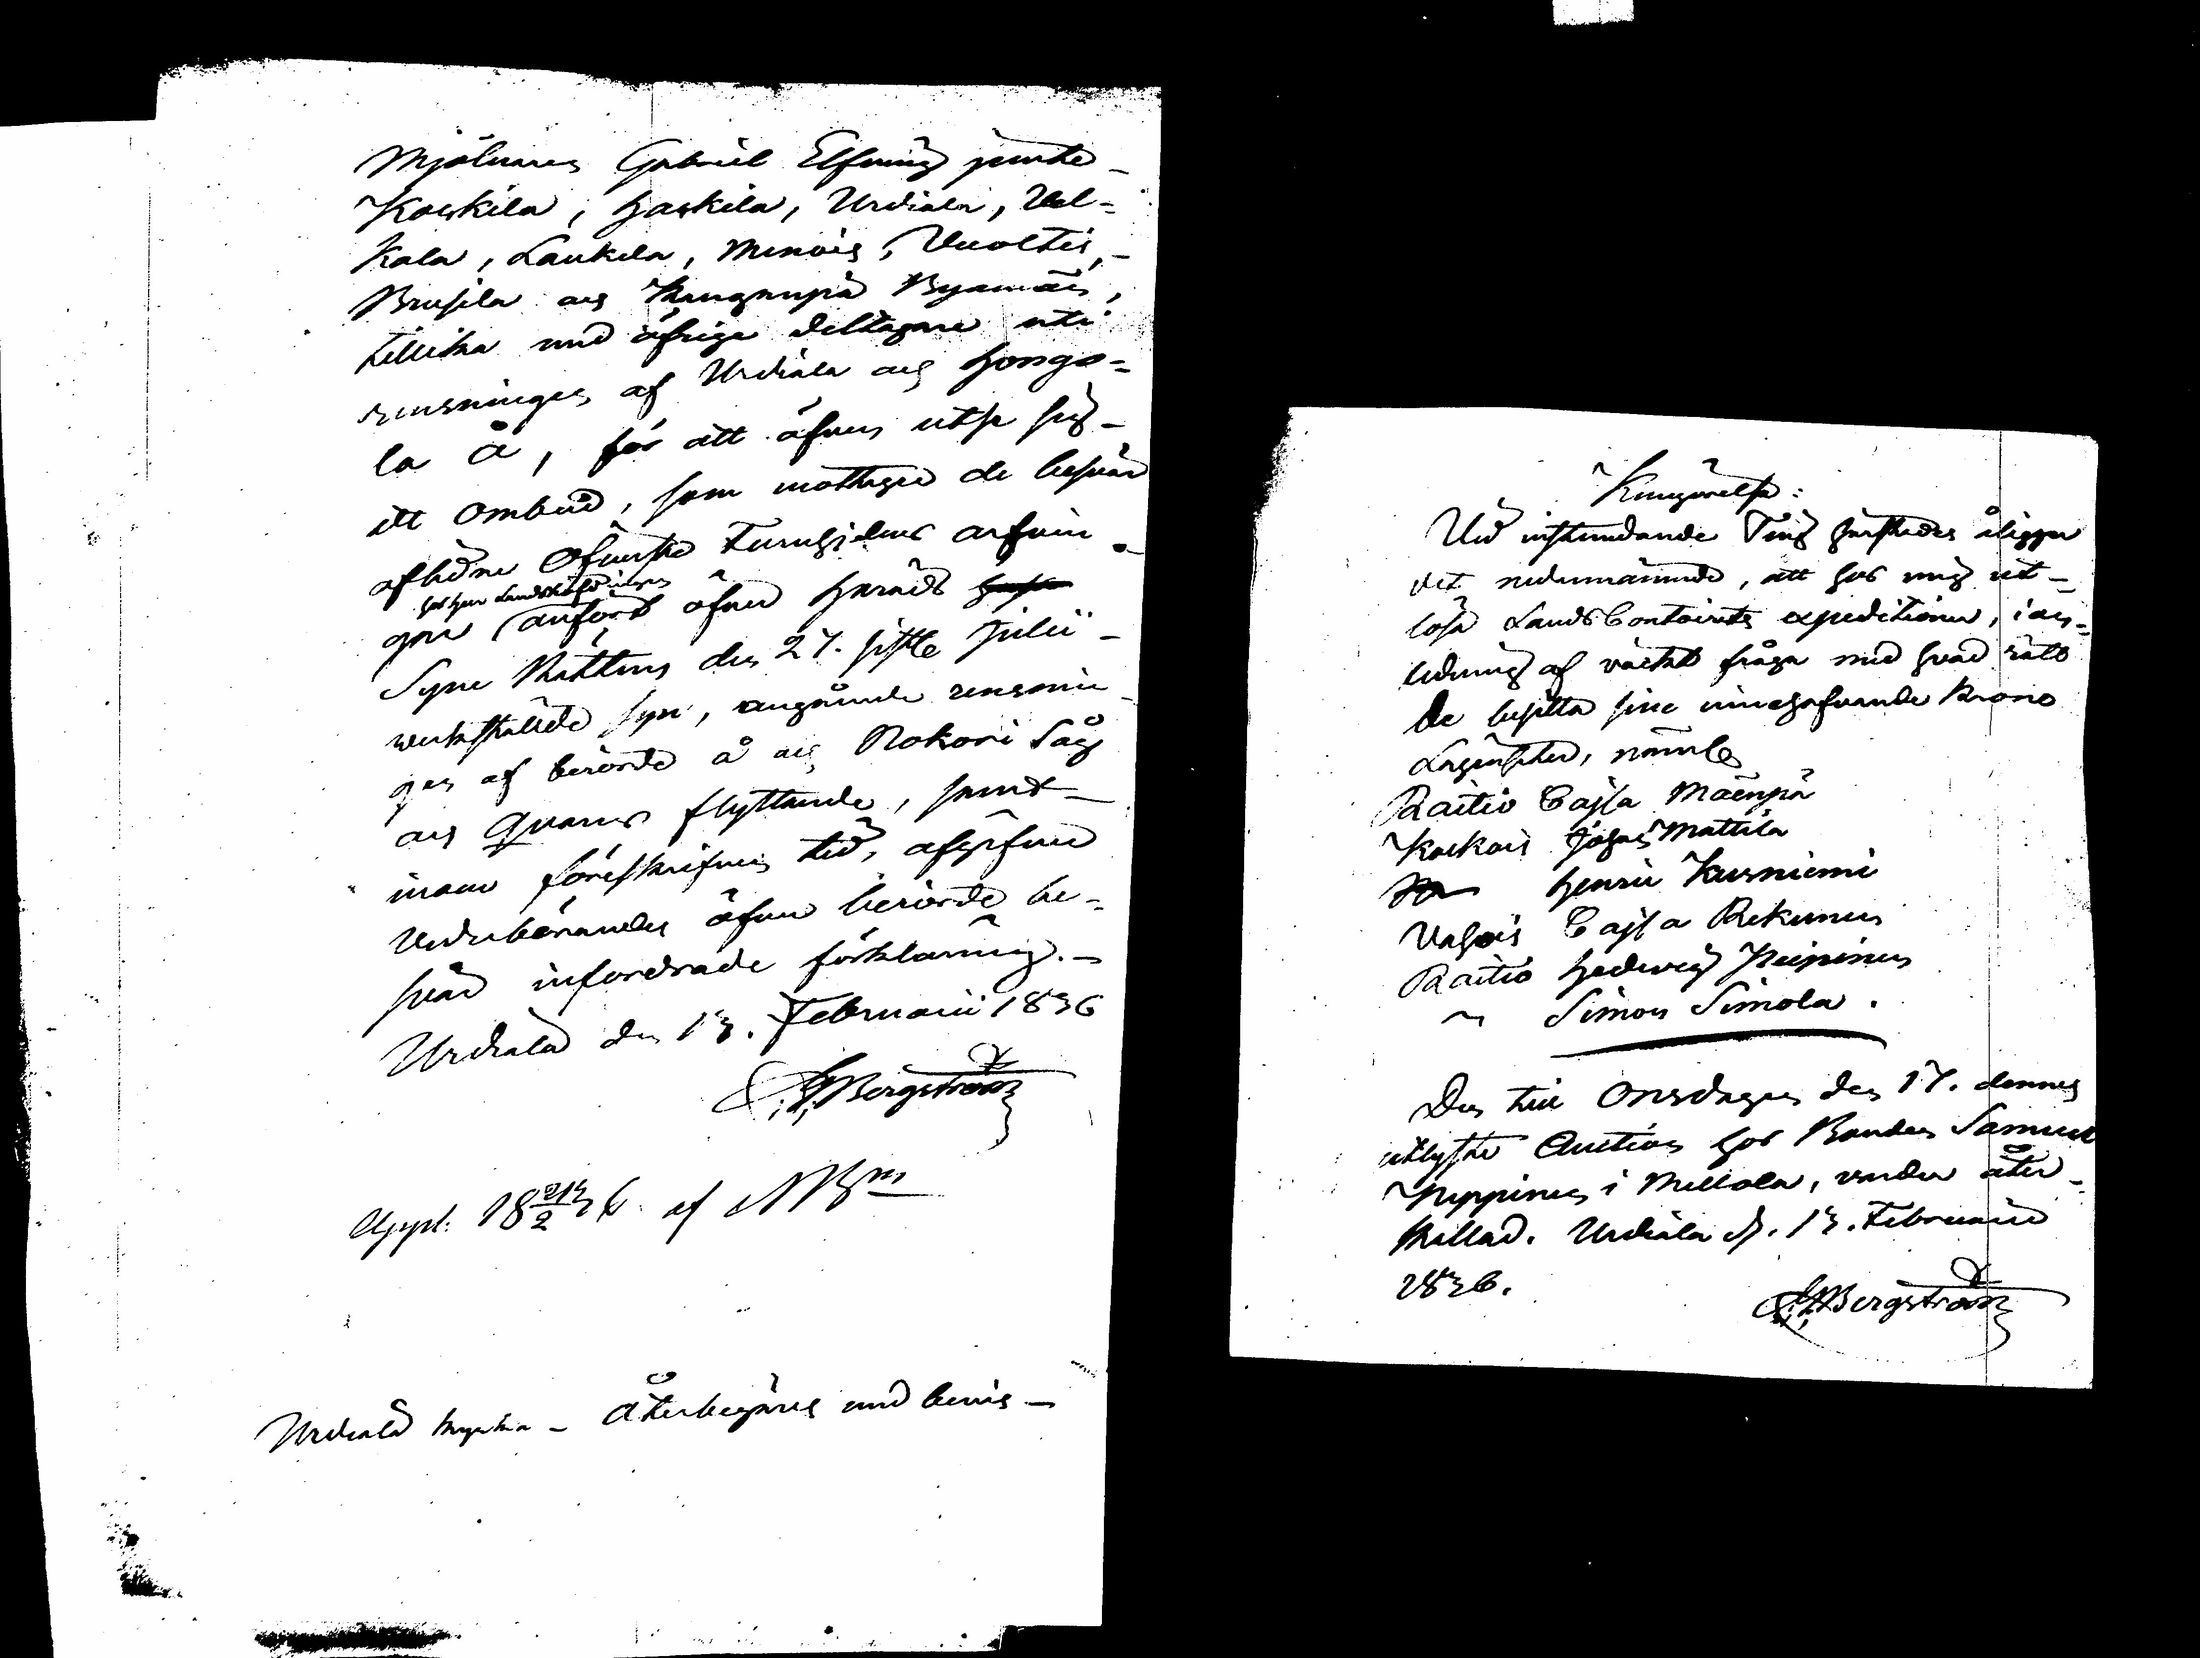 Mjölnaren Gabriel Elfving jemte
Koskila, Haskila, Urdiala, Wal-
kala, Laukela, Menois, Vuoltis,
Brusila och Kanganpä Byamän,
tillika med öfrige deltagare uti
rensningen af Urdiala och Hongo-
la å, för att äfven utse sig
ett Ombud, som mottager de besvär
aflidne Öfverste Furuhjelms arfvin-
hos Herr Landshöfdingen
gar anfört öfver Härads
Syne Rättens den 27. sistl. Julii
verkstälde syn, angående rensnin-
gen af berörde å och Nokori Såg
och Qvarns flyttande, samt
inom föreskrifven tid, afgifver
Vederbörandes öfver berörde be-
svär infordrade förklaring. —
Urdiala den 13. Februarii 1836
Bergström
Uppl: 18 21/2 36 af
Urdiala kyrka — Återbegäres med bevis —
Kungörelse:
Vid instundande Ting härstädes åligger
det nedannämnde, att hos mig ut-
lösa LandsContoirets expeditioner, i an-
ledning af väckt fråga med hvad rätt
de besitta sine innehafvande Krono
Lägenheter, näml.
Raitio Cajsa Mäenpä
Koskois Johan Mattila
Henric Kurniemi
Vahois Cajsa Rekunen
Raitio Hedevig Peipinen
" Simon Simola.
Den till Onsdagen den 17. dennes
utlyste Auction hos Bonden Samuel
Peppinen i Mellola, varder åter-
kallad. Urdiala d. 13. Februarii
1836.
Bergström